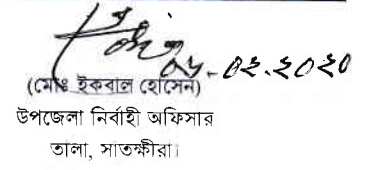 - ০২.২০২০
(মোঃ ইকবাল হোসেন)
উপজেলা নির্বাহী অফিসার
তালা, সাতক্ষীরা।